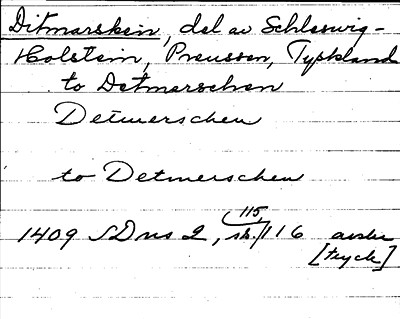 Ditmarsken, del av Schleswig-
Holstein, Preussen, Tyskland
to Detmerschen
Detmerschen
to Detmerschen
115,
1409 SDns 2, sid. 116 avskr
[tryck]